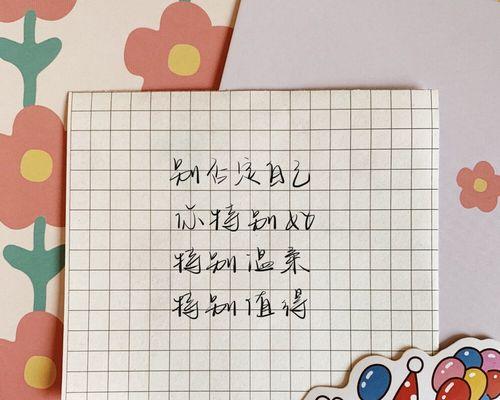 别否定自己
你特别好
特别温柔
特别值得